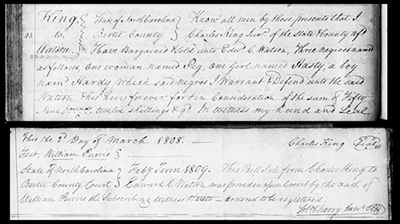 King } State of North Carolina } Know all men by these presents that I
to } Bertie County } Charles King Senr of the State & County afd
Watson } Have Bargained & Sold unto Edwd C. Watson, three negroes named
as follows, one woman named Peg, one Girl named Hasty, a boy
name Hardy, which said negroes I Warrant & Defend unto the said
Watson his Heirs forever, for in Consideration of the sum of Fifty
Nine pounds twelve shillings & In witness my hand and Seal
this the 2d Day of March 1808. Charles King Seal
Test William Purvis
State of North Carolina } Feby Term 1809. This Bill Sale from Charles King to
Bertie County Court } Edward C Watson was proven in open Court by the oath of
William Purvis the Subscribing witness thereto ordered to be registered.